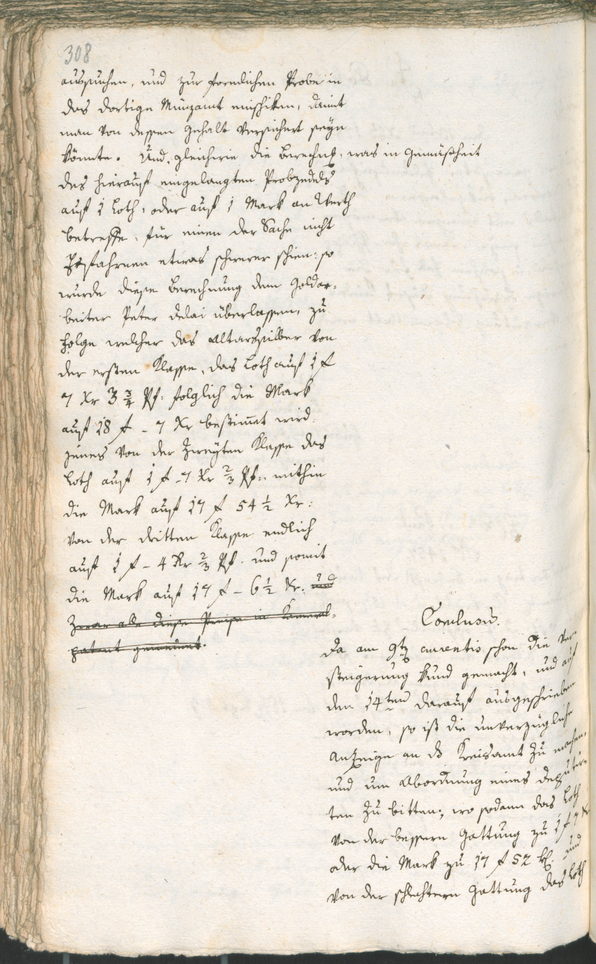 308
aussuchen, und zur formlichen Probe in
das dortige Münzamt einschiken, damit
man von dessen Gehalt versichert seyn
könnte. Und gleichwie die Berechnung, was in Gemäßheit
des hierauf eingelangten Probzedels
auf 1 Loth, oder auf 1 Mark an Werth
betreffe, für einen der Sache nicht
Erfahrnen etwas schwerer schien: so
wurde diese Berechnung dem Goldar-
beiter Peter Delai überlassen, zu
folge welcher das Altarssilber von
der ersten Klasse, das Loth auf 1 f
7 Xr 3 3/4 Pf. folglich die Mark
auf 18 f - 7 Xr bestimmt wird.
jenes von der zweyten Klasse das
Loth auf 1 f - 7 Xr 2/3 Pf. mithin
die Mark auf 17 f 54 1/2 Xr:
von der dritten Klasse endlich
auf 1 f - 4 Xr 2/3 Pf. und somit
die Mark auf 17 f - 6 1/2 Xr. und
zwar alle diese Preise in
patent
Conclusum.
Da am 9ten currentis schon die Ver-
steigerung kund gemacht, und auf
den 14ten darauf ausgeschrieben
worden, so ist die unverzügliche
Anzeige an das Kreisamt zu machen,
und um Abordnung eines Deputir-
ten zu bitten; wo sodann das Loth
von der bessern Gattung zu 1 f 7 Xr
oder die Mark zu 17 f 52 Xr. und
von der schlechtern Gattung das Loth